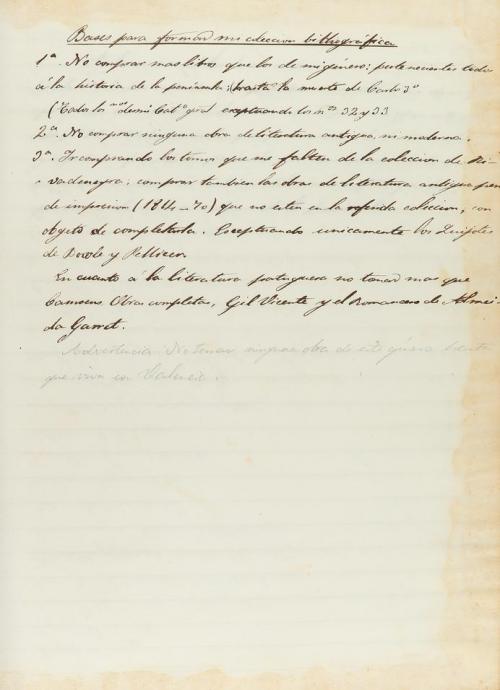 Bases para formar mi coleccion bibliográfica
1ª. No comprar mas libros que los de mi género; pertenecientes todo
á la historia de la península; hasta la muerte de Carlos 3º
(Todos los nos de mi Cat.º gral exceptuando los nos 32 y 33
2ª. No comprar ninguna obra de literatura antigua, ni moderna.
3ª. Ir comprando los tomos que me falten de la coleccion de Ri-
vadeneyra; comprar tambien las obras de literatura antigua
de impresion (1844-70) que no esten en la referida coleccion, con
objeto de completarla. Esceptuando unicamente los Quijotes
de Bowle y Pellicer
En cuanto á la literatura portuguesa no tomar mas que
Camoens Obras completas, Gil Vicente y el Romancero de Almei-
da Garret.
Advertencia. No tomar ninguna obra de este género hasta
que viva en